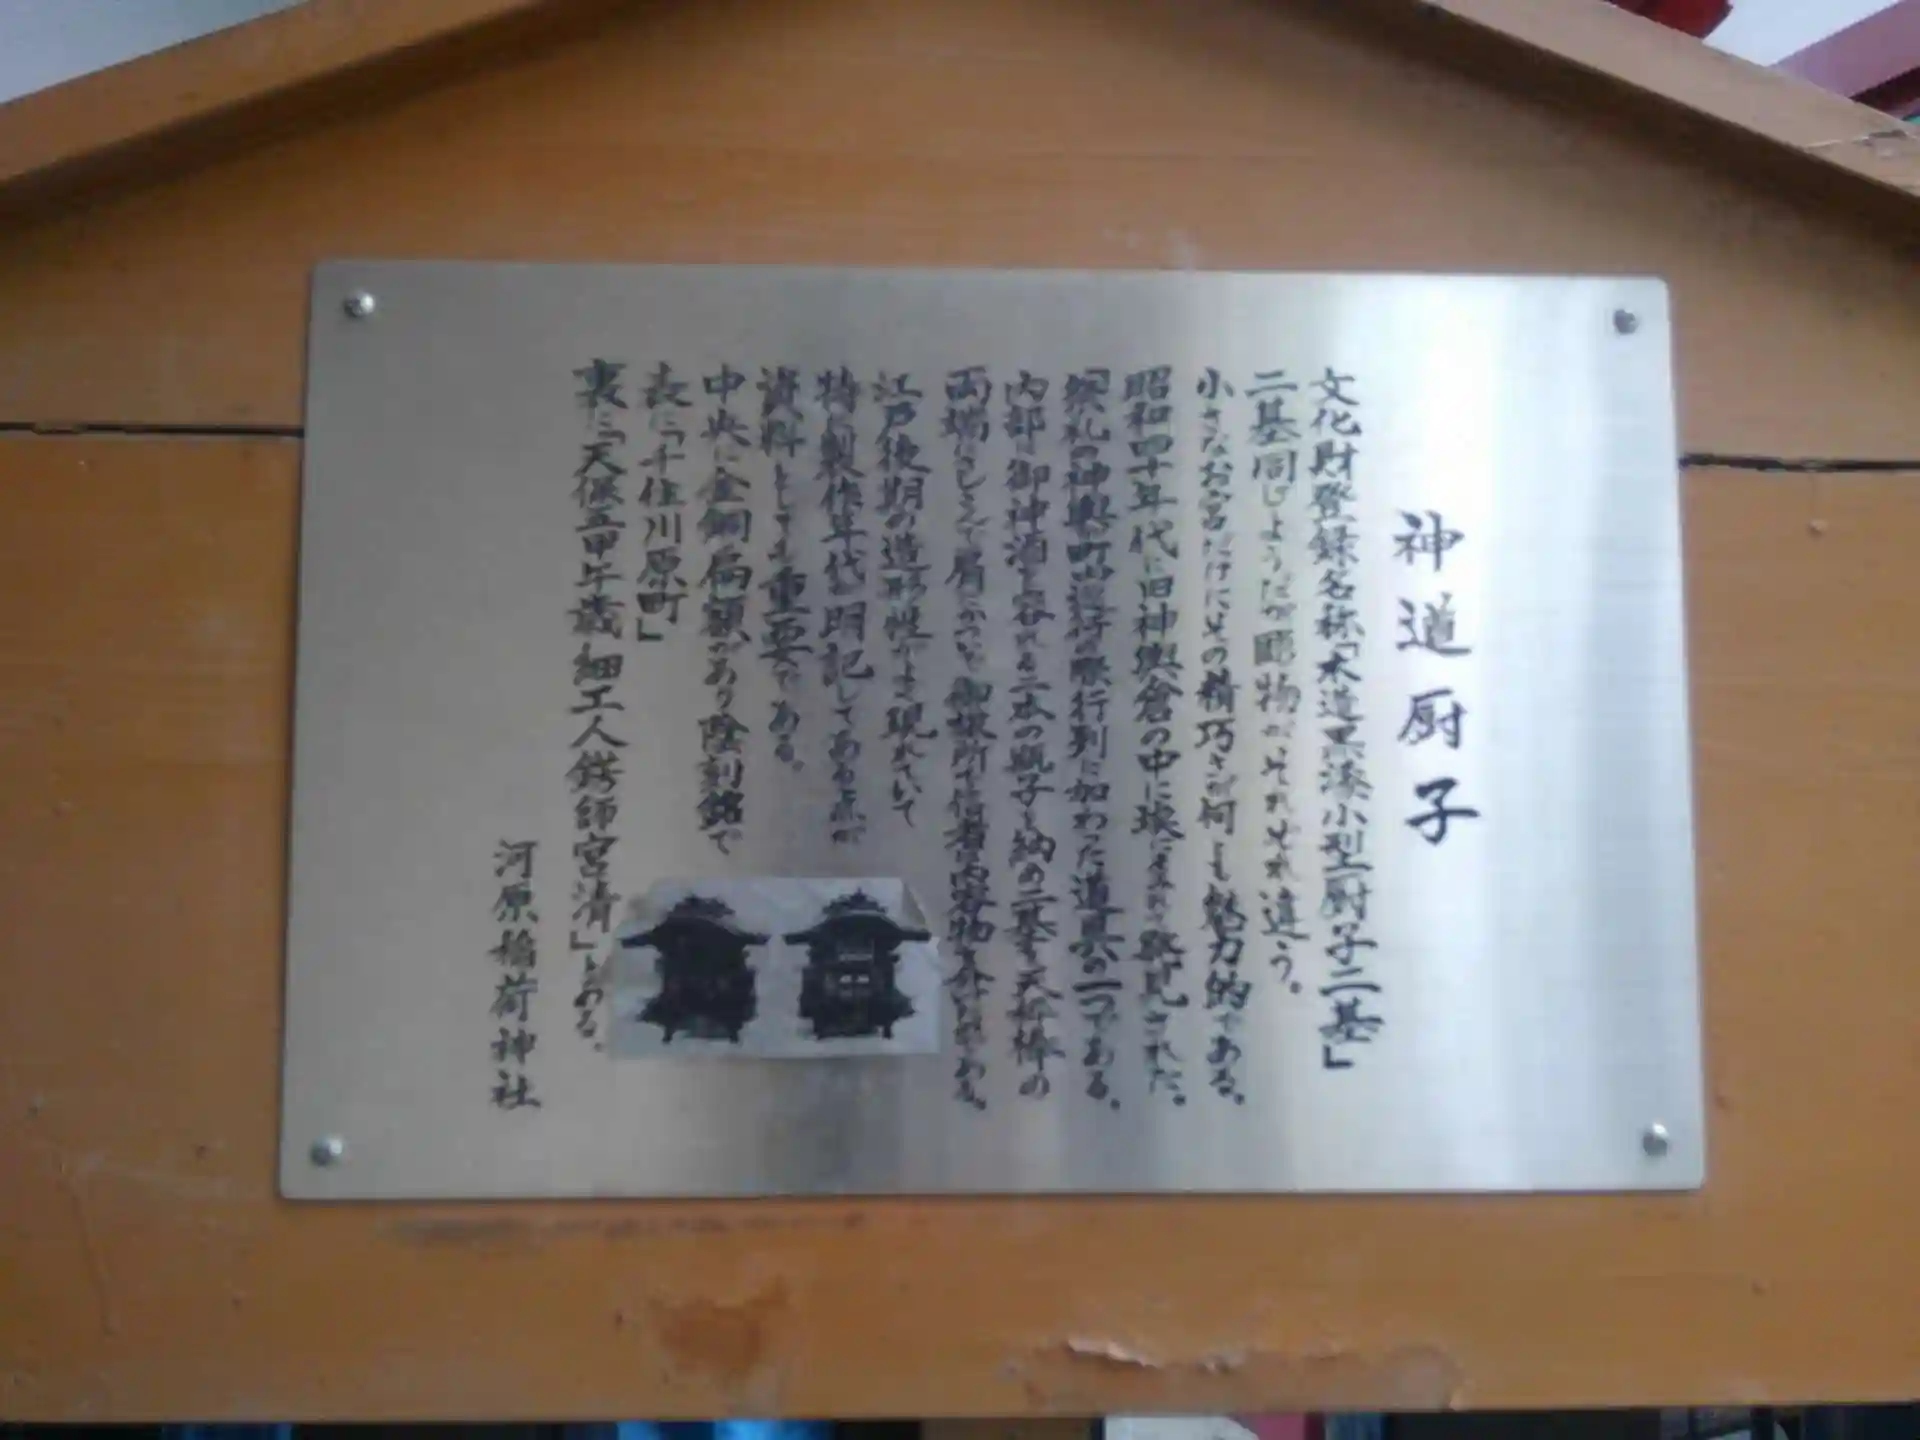 神道厨子
文化財登録名称「木造黒漆小型厨子二基」
二基同じようだが彫物がそれぞれ違う。
小さなお宮だけにその精巧さが何とも魅力的である。
昭和四十年代に旧神輿倉の中に埃にまみれ発見された。
祭礼の神輿町内渡御の際行列に加わった道具の一つである。
内部に御神酒を容れる二本の瓶子を納め二基を天秤棒の
両端にして肩にかつぎ御旅所で信者に内容物を
江戸後期の造形性がよく現れていて
特に製作年代が明記してある点が
資料としても重要である。
中央に金銅扁額があり陰刻銘で
表に「千住川原町」
裏に「天保五甲午歳 細工人 錺師宮清」とある。
河原稲荷神社